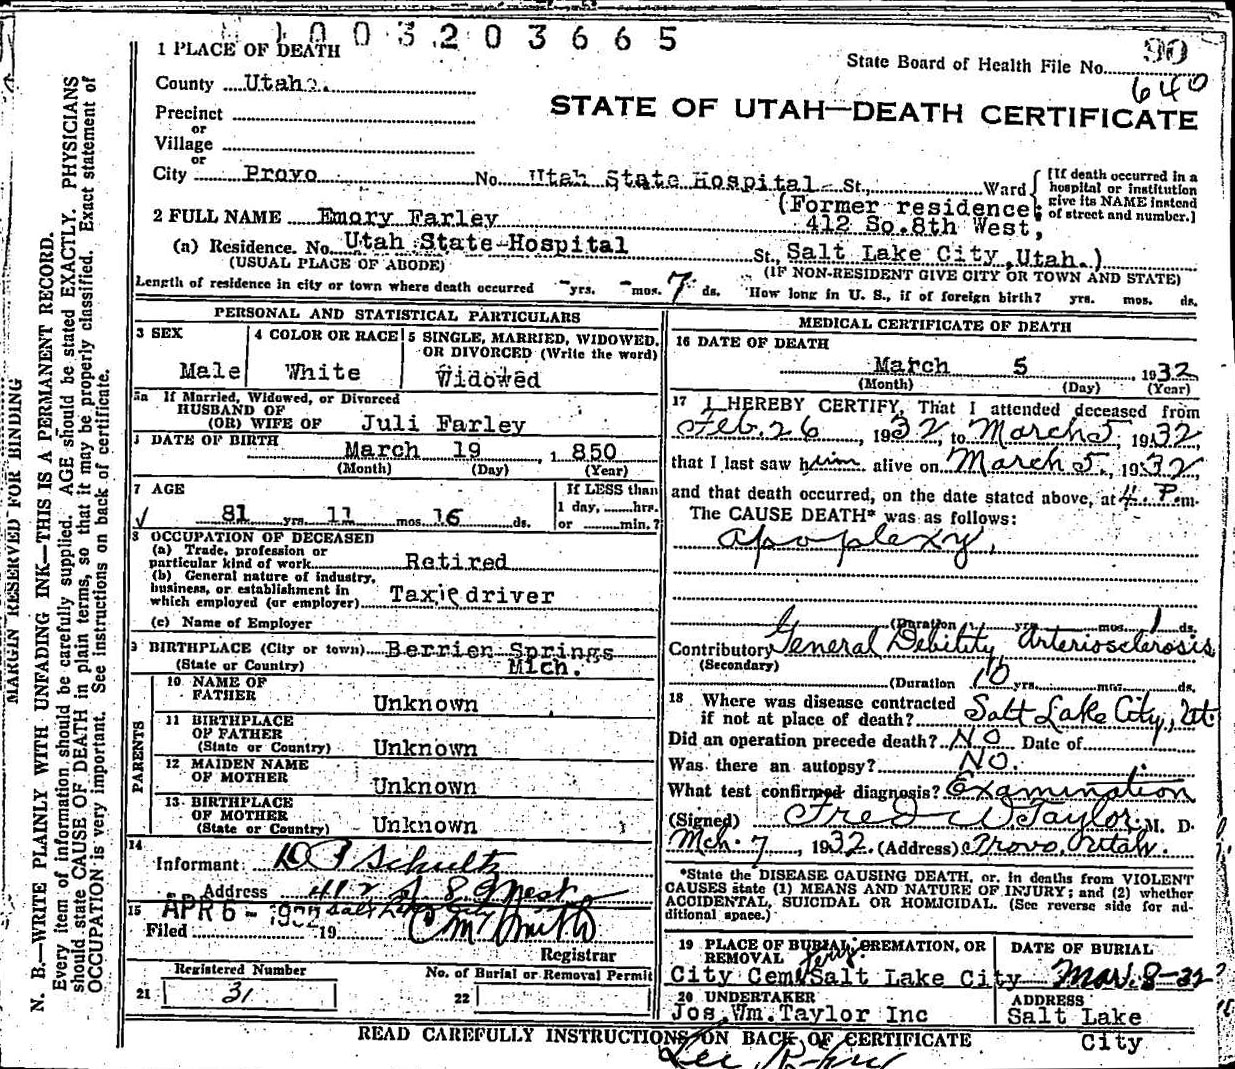 1003203665
1 PLACE OF DEATH
State Board of Health File No. 90
640
County Utah
STATE OF UTAH—DEATH CERTIFICATE
Precinct
or
Village
or
City Provo No. Utah State Hospital St., Ward
[If death occurred in a hospital or institution give its NAME instead of street and number.]
2 FULL NAME Emory Farley
(Former residence;
412 So. 8th West,
(a) Residence. No. Utah State Hospital St., Salt Lake City, Utah.)
(USUAL PLACE OF ABODE) (IF NON-RESIDENT GIVE CITY OR TOWN AND STATE)
Length of residence in city or town where death occurred -yrs. -mos. 7 ds. How long in U. S., if of foreign birth? yrs. mos. ds.
PERSONAL AND STATISTICAL PARTICULARS
3 SEX
Male
4 COLOR OR RACE
White
5 SINGLE, MARRIED, WIDOWED, OR DIVORCED (Write the word)
Widowed
5a If Married, Widowed, or Divorced
HUSBAND OF
(OR) WIFE OF Juli Farley
DATE OF BIRTH
March 19, 1850
(Month) (Day) (Year)
7 AGE
81 yrs. 11 mos. 16 ds.
If LESS than
1 day, hrs.
or min.?
8 OCCUPATION OF DECEASED
(a) Trade, profession or
particular kind of work Retired
(b) General nature of industry,
business, or establishment in
which employed (or employer) Taxie driver
(c) Name of Employer
9 BIRTHPLACE (City or town) Berrien Springs
(State or Country) Mich.
PARENTS
10 NAME OF
FATHER Unknown
11 BIRTHPLACE
OF FATHER
(State or Country) Unknown
12 MAIDEN NAME
OF MOTHER Unknown
13 BIRTHPLACE
OF MOTHER
(State or Country) Unknown
14
Informant Schultz
Address 412 S. 8 West
Salt Lake City
15 APR 6 - 1932
Filed 19
Registrar
Registered Number
21 31
No. of Burial or Removal Permit
22
MEDICAL CERTIFICATE OF DEATH
16 DATE OF DEATH
March 5 1932
(Month) (Day) (Year)
17 I HEREBY CERTIFY, That I attended deceased from
Feb. 26, 1932, to March 5, 1932
that I last saw him alive on March 5, 1932,
and that death occurred, on the date stated above, at 4. P. m.
The CAUSE DEATH* was as follows:
apoplexy,
(Duration yrs. mos. 1 ds.
Contributory General Debility, Arteriosclerosis
(Secondary)
(Duration 10 yrs. mos. ds.
18 Where was disease contracted
if not at place of death? Salt Lake City, Ut.
Did an operation precede death? No Date of
Was there an autopsy? No.
What test confirmed diagnosis? Examination
(Signed) Fred W Taylor M. D.
Mch. 7, 1932 (Address) Provo, Utah.
*State the DISEASE CAUSING DEATH, or, in deaths from VIOLENT
CAUSES state (1) MEANS AND NATURE OF INJURY; and (2) whether
ACCIDENTAL, SUICIDAL OR HOMICIDAL. (See reverse side for ad-
ditional space.)
19 PLACE OF BURIAL, CREMATION, OR
REMOVAL
City Cem. Salt Lake City
DATE OF BURIAL
Mar. 8-32
20 UNDERTAKER
Jos. Wm. Taylor Inc
ADDRESS
Salt Lake
City
READ CAREFULLY INSTRUCTIONS ON BACK OF CERTIFICATE
MARGIN RESERVED FOR BINDING
N. B.—WRITE PLAINLY WITH UNFADING INK—THIS IS A PERMANENT RECORD.
Every item of information should be carefully supplied. AGE should be stated EXACTLY. PHYSICIANS
should state CAUSE OF DEATH in plain terms, so that it may be properly classified. Exact statement of
OCCUPATION is very important. See instructions on back of certificate.